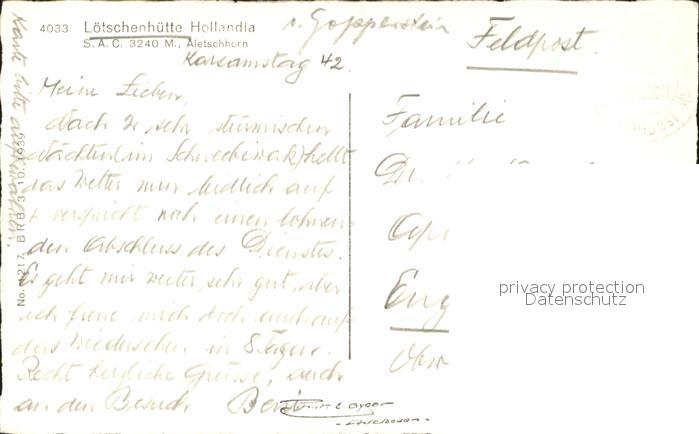 4033 Lötschenhütte Hollandia
S. A. C. 3240 M., Aletschhorn
v. Goppenstein
Karsamstag 42.
Feldpost.
Meine Lieben,
Nach 2 sehr stürmischen
Nächten (im Schneebiwak) hellt
das Wetter nun endlich auf
+ verspricht noch einen lohnen-
den Abschluss des Dienstes.
Es geht mir weiter sehr gut, aber
ich freue mich doch auch auf
das Wiedersehen in 8 Tagen.
Recht herzliche Grüsse, auch
an den Besuch
Karte bitte aufbewahren!
No. 4217 BRB 3. 10. 1939
Familie
Dr.
Eng
Obw
privacy protection
Datenschutz